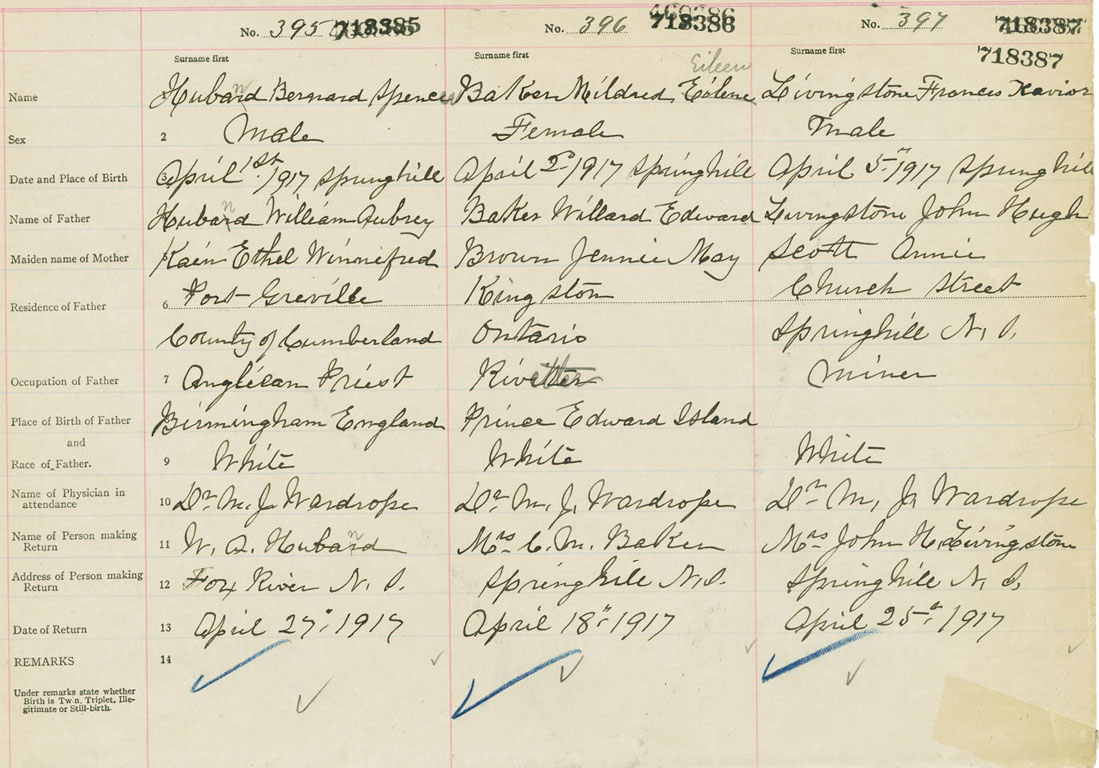 No. 395 718385 No. 396 460386 718386 No. 397 718387
718387
Surname first Surname first Surname first
Eileen
Name Hubard Bernard Spence Baker Mildred Eilene Livingstone Frances Xavior
n
Sex 2 Male Female Male
Date and Place of Birth 3 April 1st/1917 Springhill April 2nd/1917 Springhill April 5th/1917 Springhill
Name of Father Hubard William Aubrey Baker Willard Edward Livingstone John Hugh
n
Maiden name of Mother Kain Ethel Winnifred Brown Jennie May Scott Annie
Residence of Father 6 Port Greville Kingston Church Street
County of Cumberland Ontario Springhill N. S.
Occupation of Father 7 Anglican Priest Rivetter Miner
Place of Birth of Father Birmingham England Prince Edward Island
and
Race of Father. 9 White White White
Name of Physician in attendance 10 Dr. M. J. Wardrope Dr. M. J. Wardrope Dr. M. J. Wardrope
Name of Person making Return 11 W. A. Hubard Mrs C. M. Baker Mrs John H. Livingstone
n
Address of Person making Return 12 Fox River N. S. Springhill N.S. Springhill N. S.
Date of Return 13 April 27" 1917 April 18" 1917 April 25th 1917
REMARKS 14
Under remarks state whether
Birth is Twin, Triplet, Ille-
gitimate or Still-birth.